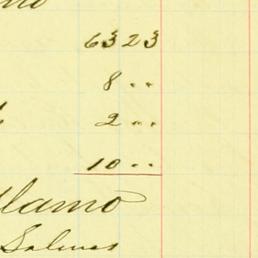 63 23
8 ..
2 ..
10 ..
Alamo
Salinas